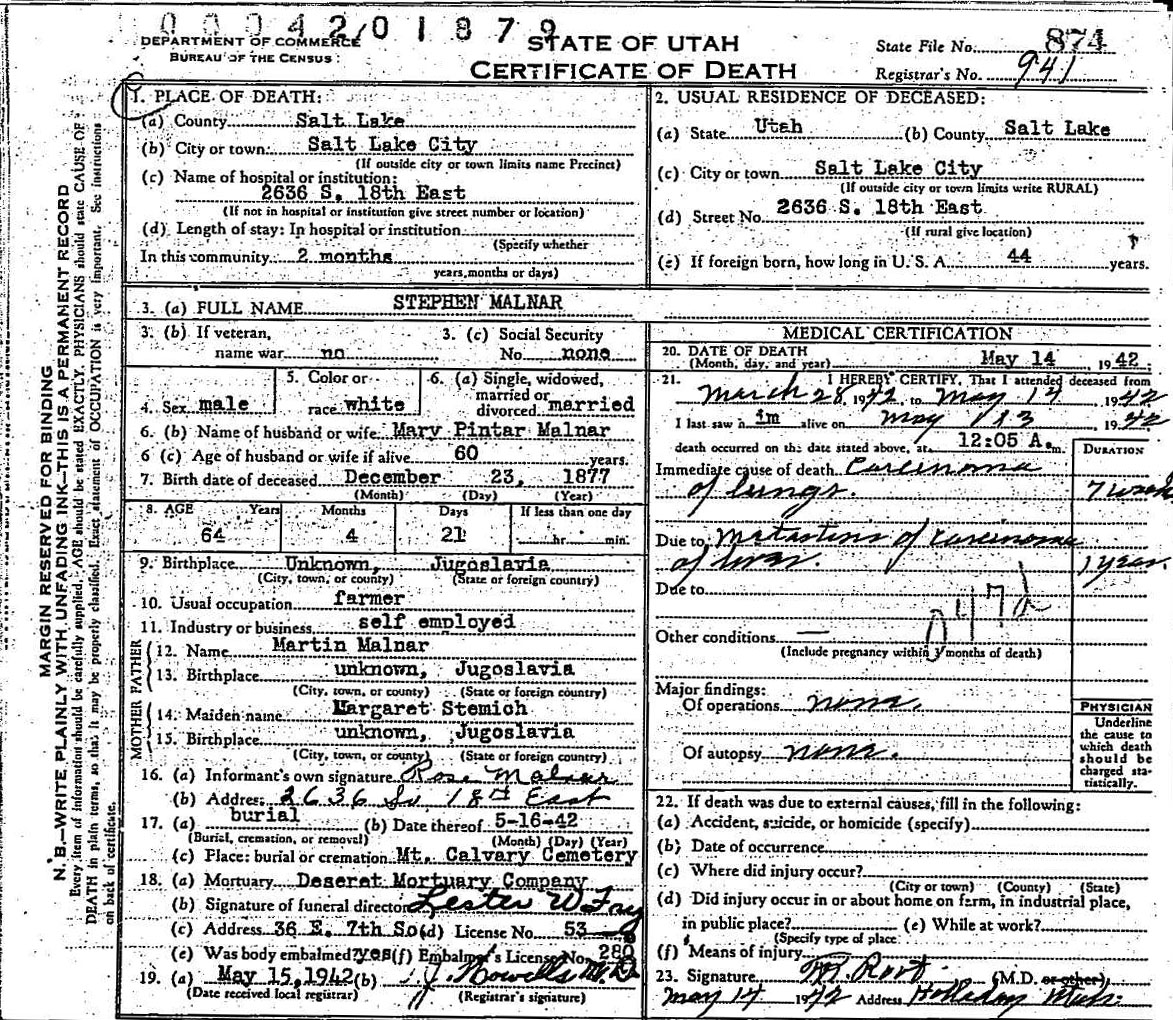 0004201879
DEPARTMENT OF COMMERCE
BUREAU OF THE CENSUS
STATE OF UTAH
CERTIFICATE OF DEATH
State File No. 874
Registrar's No. 941
MARGIN RESERVED FOR BINDING
N. B.—WRITE PLAINLY WITH UNFADING INK—THIS IS A PERMANENT RECORD
Every item of information should be carefully supplied. AGE should be stated EXACTLY. PHYSICIANS should state CAUSE OF
DEATH in plain terms, so that it may be properly classified. Exact statement of OCCUPATION is very important. See instructions
on back of certificate.
1. PLACE OF DEATH:
(a) County Salt Lake
(b) City or town: Salt Lake City
(If outside city or town limits name Precinct)
(c) Name of hospital or institution:
2636 S. 18th East
(If not in hospital or institution give street number or location)
(d) Length of stay: In hospital or institution
(Specify whether
In this community 2 months
years, months or days)
2. USUAL RESIDENCE OF DECEASED:
(a) State Utah (b) County Salt Lake
(c) City or town Salt Lake City
(If outside city or town limits write RURAL)
(d) Street No. 2636 S. 18th East
(If rural give location)
(e) If foreign born, how long in U. S. A. 44 years.
3. (a) FULL NAME STEPHEN MALNAR
3. (b) If veteran,
name war no
3. (c) Social Security
No. none
4. Sex male
5. Color or
race white
6. (a) Single, widowed,
married or
divorced married
6. (b) Name of husband or wife Mary Pintar Malnar
6 (c) Age of husband or wife if alive 60 years.
7. Birth date of deceased December 23, 1877
(Month) (Day) (Year)
8. AGE Years Months Days If less than one day
64 4 21 hr. min.
9. Birthplace Unknown, Jugoslavia
(City, town, or county) (State or foreign country)
10. Usual occupation farmer
11. Industry or business self employed
FATHER
12. Name Martin Malnar
13. Birthplace unknown, Jugoslavia
(City, town, or county) (State or foreign country)
MOTHER
14. Maiden name Margaret Stemich
15. Birthplace unknown, Jugoslavia
(City, town, or county) (State or foreign country)
16. (a) Informant's own signature Rose Malnar
(b) Address 2636 So 18th East
17. (a) burial (b) Date thereof 5-16-42
(Burial, cremation, or removal) (Month) (Day) (Year)
(c) Place: burial or cremation Mt. Calvary Cemetery
18. (a) Mortuary Deseret Mortuary Company
(b) Signature of funeral director Lester W.
(c) Address 36 E. 7th So (d) License No. 53
(e) Was body embalmed? yes (f) Embalmer's License No. 280
19. (a) May 15, 1942 (b) J. Howells M.D.
(Date received local registrar) (Registrar's signature)
MEDICAL CERTIFICATION
20. DATE OF DEATH
(Month, day, and year) May 14 1942.
21. I HEREBY CERTIFY, That I attended deceased from
March 28, 1942, to May 14 1942
I last saw him alive on May 13 1942
death occurred on the date stated above, at 12:05 A. m.
DURATION
Immediate cause of death Carcinoma
of lungs. 7 weeks
Due to Metastisis of carcinoma
of liver. 1 year.
Due to
047d
Other conditions —
(Include pregnancy within 3 months of death)
Major findings:
Of operations none.
Of autopsy none.
PHYSICIAN
Underline
the cause to
which death
should be
charged sta-
tistically.
22. If death was due to external causes, fill in the following:
(a) Accident, suicide, or homicide (specify)
(b) Date of occurrence
(c) Where did injury occur?
(City or town) (County) (State)
(d) Did injury occur in or about home on farm, in industrial place,
in public place? (e) While at work?
(Specify type of place
(f) Means of injury
23. Signature (M.D. or other)
May 14 1942 Address Holladay Utah.